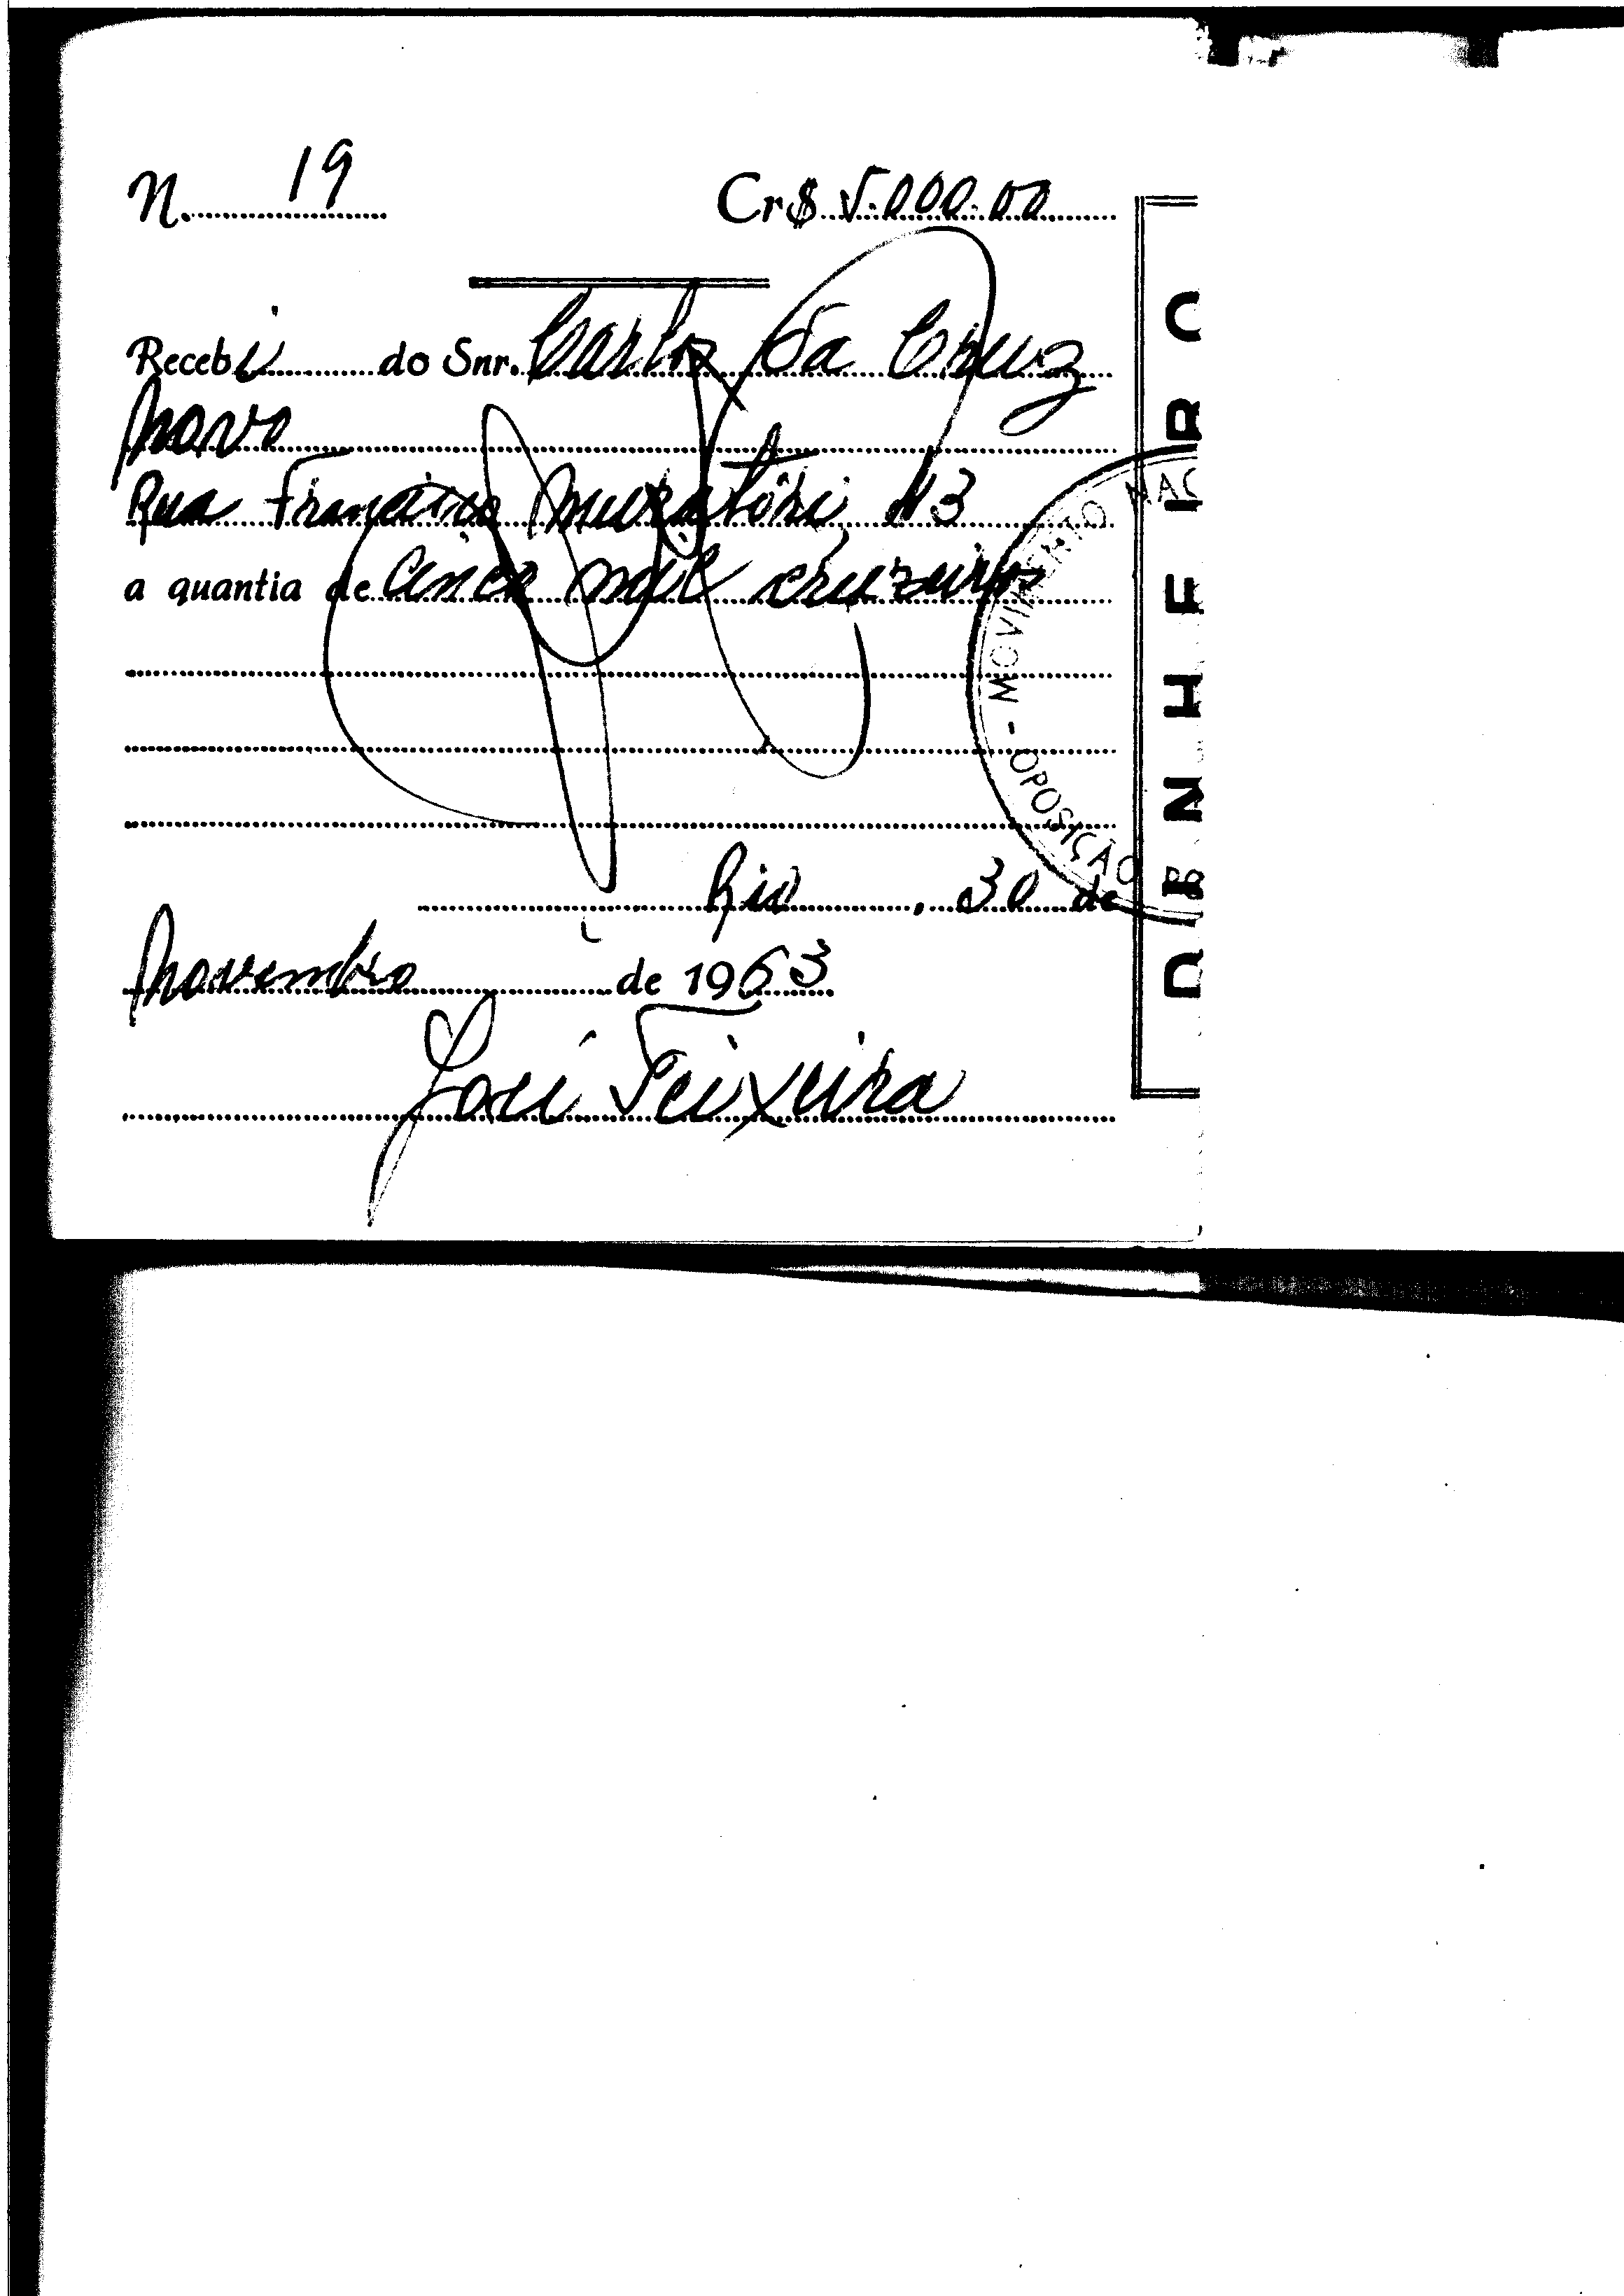 N. 19 Cr$ 5.000.00
Recebi do Snr. Carlos da Cruz
novo
Rua Francisco Muratóri N3
a quantia de cinco mil cruzeiros
Rio, 30 de
novembro de 1963
José Teixeira
DINHEIRO
MOVIMENTO NAC
OPOSIÇÃO PO